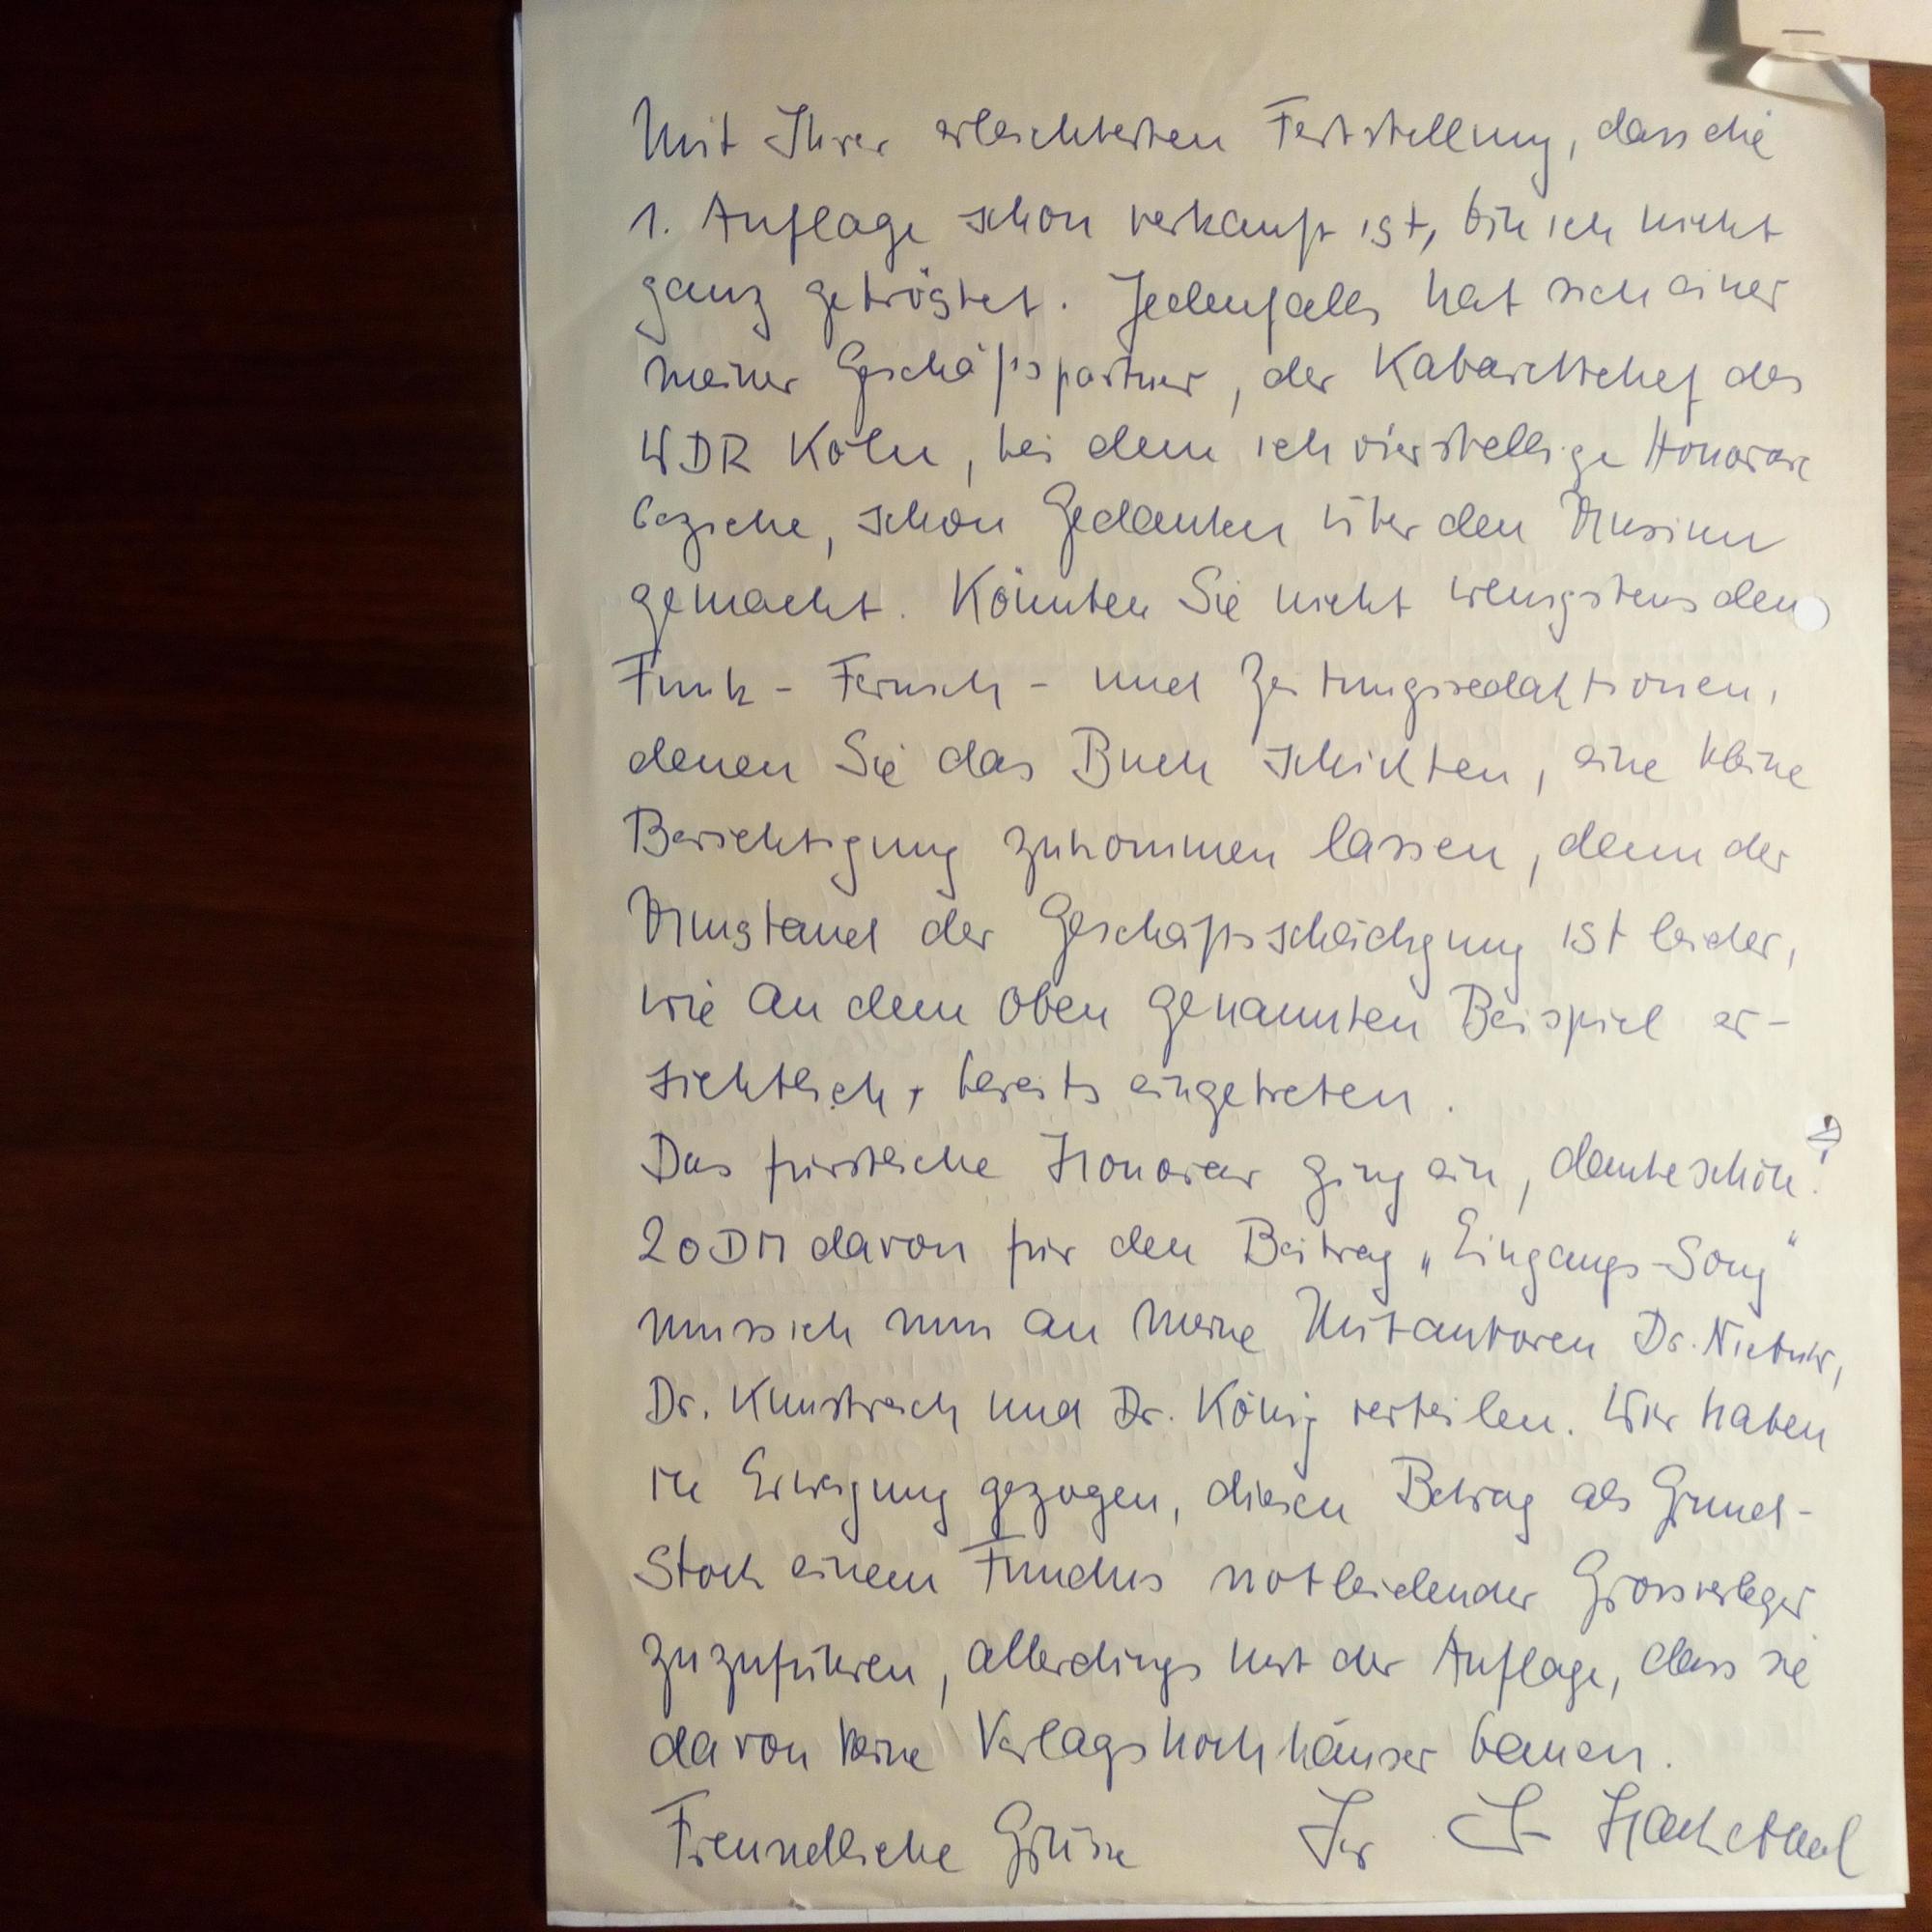 Mit Ihrer erleichterten Feststellung, dass die
1. Auflage schon verkauft ist, bin ich nicht
ganz getröstet. Jedenfalls hat sich einer
meiner Geschäftspartner, der Kabarettchef des
WDR Köln, bei dem ich vierstellige Honorare
beziehe, schon Gedanken über den Unsinn
gemacht. Könnten Sie nicht wenigstens den
Funk- Fernseh- und Zeitungsredaktionen,
denen Sie das Buch schickten, eine kleine
Berichtigung zukommen lassen, denn der
Umstand der Geschäftsschädigung ist leider,
wie an dem oben genannten Beispiel er-
sichtlich, bereits eingetreten.
Das fürstliche Honorar ging ein, dankeschön.
20 DM davon für den Beitrag „Eingangs-Song"
muss ich nun an meine Mitautoren Dr.
Dr. und Dr. König verteilen. Wir haben
in Erwägung gezogen, diesen Betrag als Grund-
stock einem Fundus notleidender Grossverleger
zuzuführen, allerdings mit der Auflage, dass sie
davon keine Verlagshochhäuser bauen.
Freundliche Grüsse Ihr